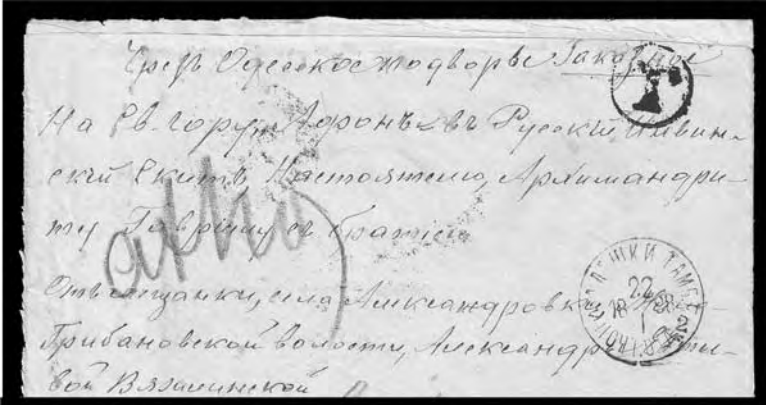 Чрезъ Одесское подворье Заказное
На Св. гору Афонъ въ Русскій Ильин-
скій Скитъ, Настоятелю, Архимандри-
ту Гавріилу съ братіею
Отъ мещанки, села Александровки
Грибановской волости, Александры
вой Вязалинской
Т
ТАМБ.
22